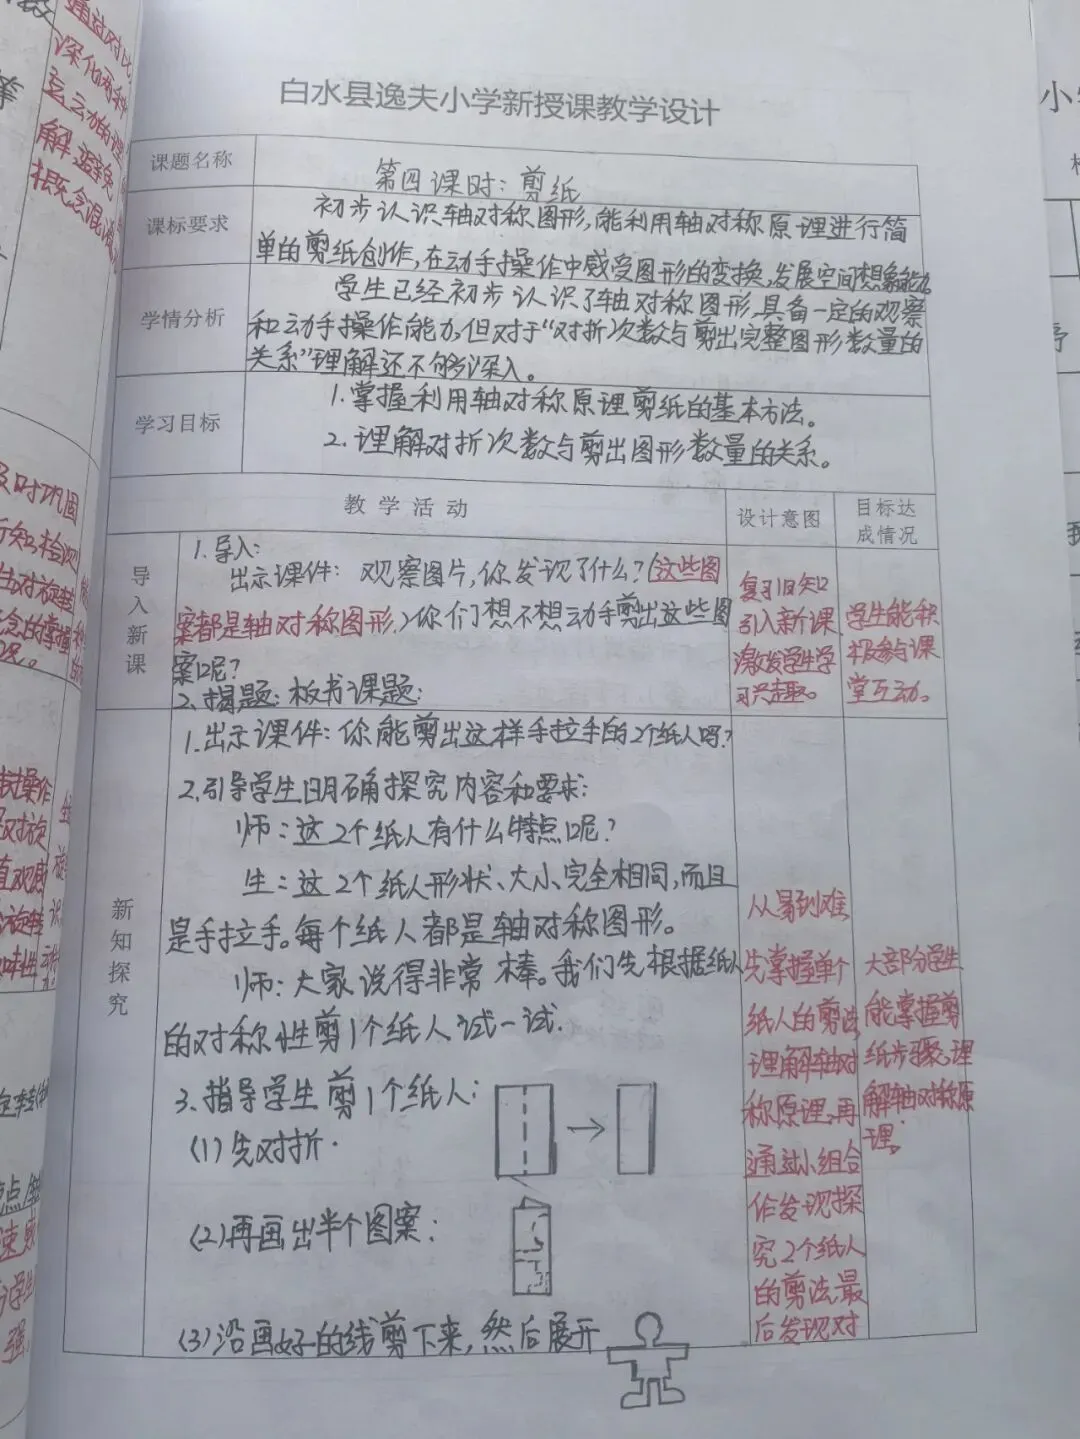 通过对比,
深化两种
运动的理
解,避免
概念混淆
白水县逸夫小学新授课教学设计
课题名称
第四课时：剪纸
课标要求
初步认识轴对称图形,能利用轴对称原理进行简
单的剪纸创作,在动手操作中感受图形的变换,发展空间想象能力。
学情分析
学生已经初步认识了轴对称图形,具备一定的观察
和动手操作能力,但对于“对折次数与剪出完整图形数量的
关系”理解还不够深入。
学习目标
1.掌握利用轴对称原理剪纸的基本方法。
2.理解对折次数与剪出图形数量的关系。
教学活动
设计意图
目标达
成情况
导入新课
1.导入:
出示课件：观察图片,你发现了什么?(这些图
案都是轴对称图形.)你们想不想动手剪出这些图
案呢?
2.揭题:板书课题:
复习旧知
引入新课
激发学生学
习兴趣。
学生能积
极参与课
堂互动。
新知探究
1.出示课件:你能剪出这样手拉手的2个纸人吗?
2.引导学生明确探究内容和要求:
师:这2个纸人有什么特点呢?
生:这2个纸人形状、大小完全相同,而且
是手拉手。每个纸人都是轴对称图形。
师:大家说得非常棒。我们先根据纸人
的对称性剪1个纸人试一试.
3.指导学生剪1个纸人:
(1)先对折.
(2)再画出半个图案:
(3)沿画好的线剪下来,然后展开
从易到难
先掌握单个
纸人的剪法,
理解轴对
称原理,再
通过小组合
作发现探
究2个纸人
的剪法,最
后发现对
大部分学生
能掌握剪
纸步骤,理
解轴对称原
理。